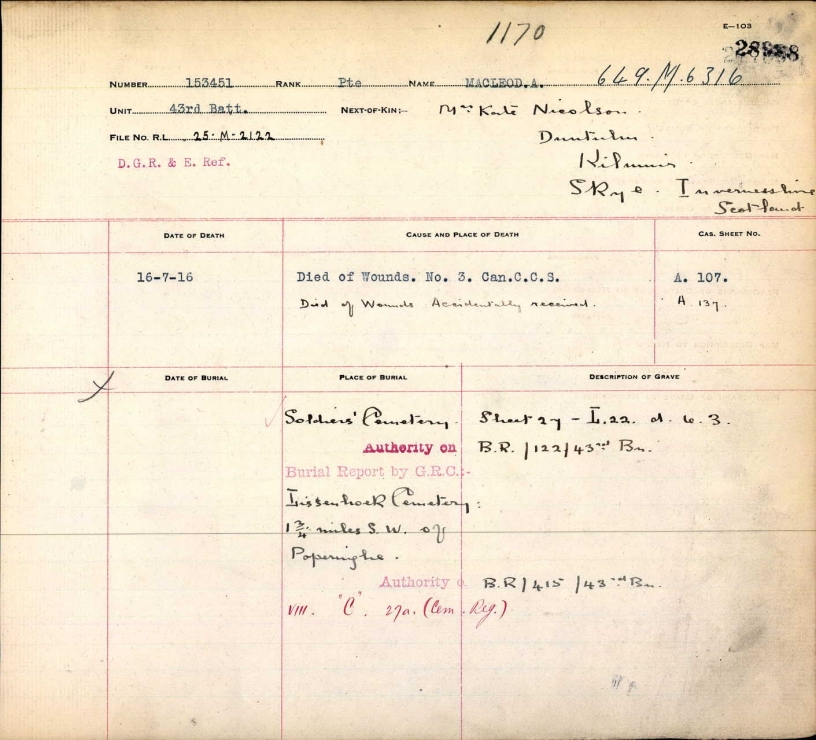 1170
E—103
649.M.6316
NUMBER 153451 RANK Pte NAME MACLEOD.A.
UNIT 43rd Batt. NEXT-OF-KIN:- Mrs Kate Nicolson.
FILE NO. R.L. 25-M-2122 Duntulm.
D.G.R. & E. Ref. Kilmuir.
Skye. Invernesshire
Scotland
DATE OF DEATH CAUSE AND PLACE OF DEATH CAS. SHEET NO.
16-7-16 Died of Wounds. No. 3. Can.C.C.S. A. 107.
Died of Wounds Accidentally received. A 137.
DATE OF BURIAL PLACE OF BURIAL DESCRIPTION OF GRAVE
Soldiers' Cemetery. Sheet 27 - L.22. d. 6. 3.
Authority on B.R./122/43rd Bn.
Burial Report by G.R.C:-
Lissenhoek Cemetery:
1 3/4 miles S.W. of
Poperinghe.
Authority o B.R/415/43rd Bn.
VIII. "C". 27a. (Cem. Reg.)